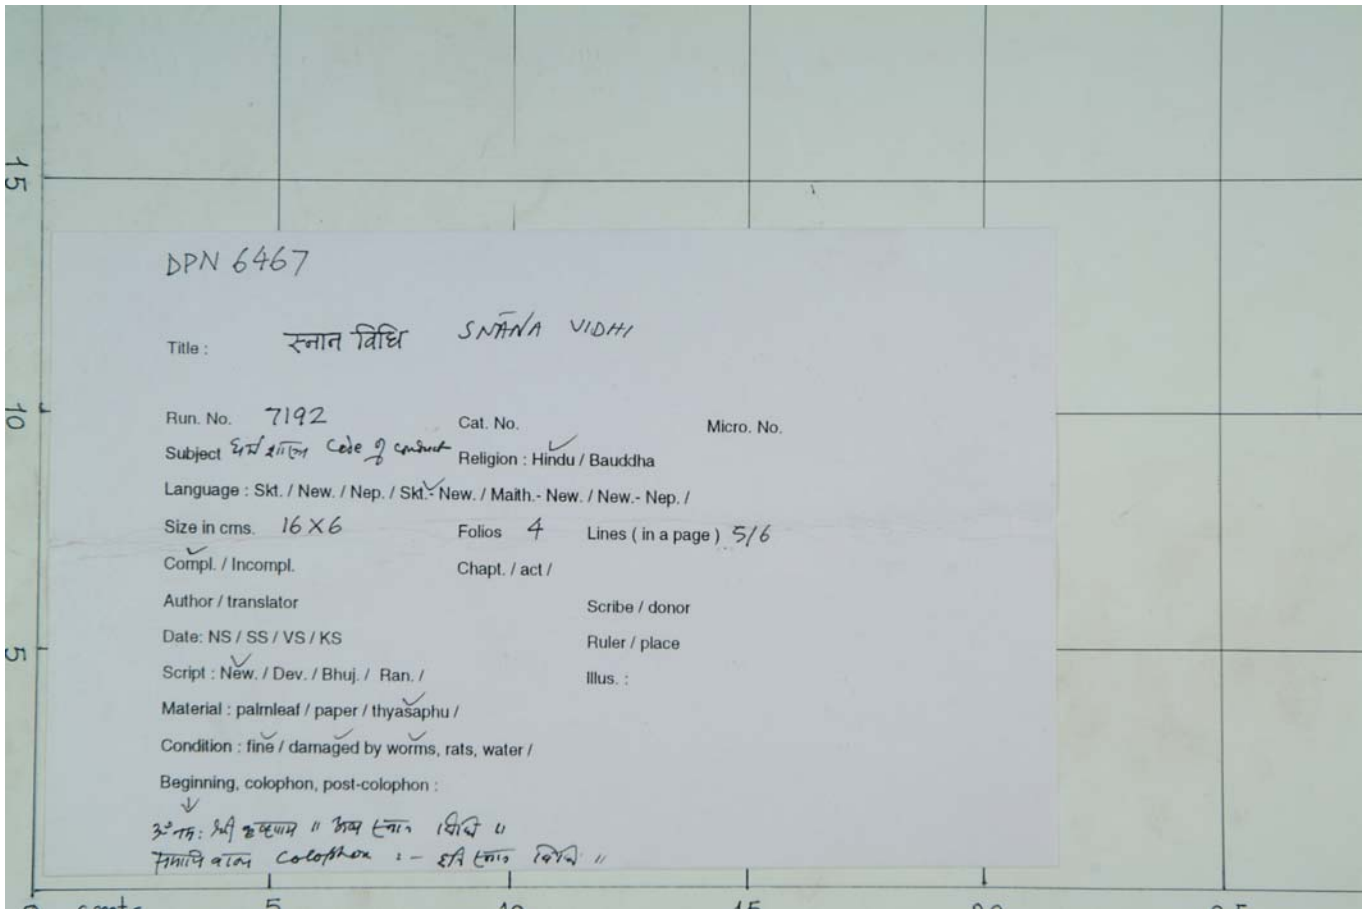 15
DPN 6467
Title : स्नान विधि SNĀNA VIDHI
10
Run. No. 7192 Cat. No. Micro. No.
Subject धर्म शास्त्र Code of conduct Religion : Hindu / Bauddha
Language : Skt. / New. / Nep. / Skt.- New. / Maith.- New. / New.- Nep. /
Size in cms. 16 X 6 Folios 4 Lines ( in a page ) 5/6
Compl. / Incompl. Chapt. / act /
Author / translator Scribe / donor
Date: NS / SS / VS / KS Ruler / place
5
Script : New. / Dev. / Bhuj. / Ran. / Illus. :
Material : palmleaf / paper / thyasaphu /
Condition : fine / damaged by worms, rats, water /
Beginning, colophon, post-colophon :
ॐ नमः श्री कृष्णाय ॥ अथ स्नान विधि ॥
समाप्ति वाक्य Colophon : - इति स्नान विधि ॥
5 10 15